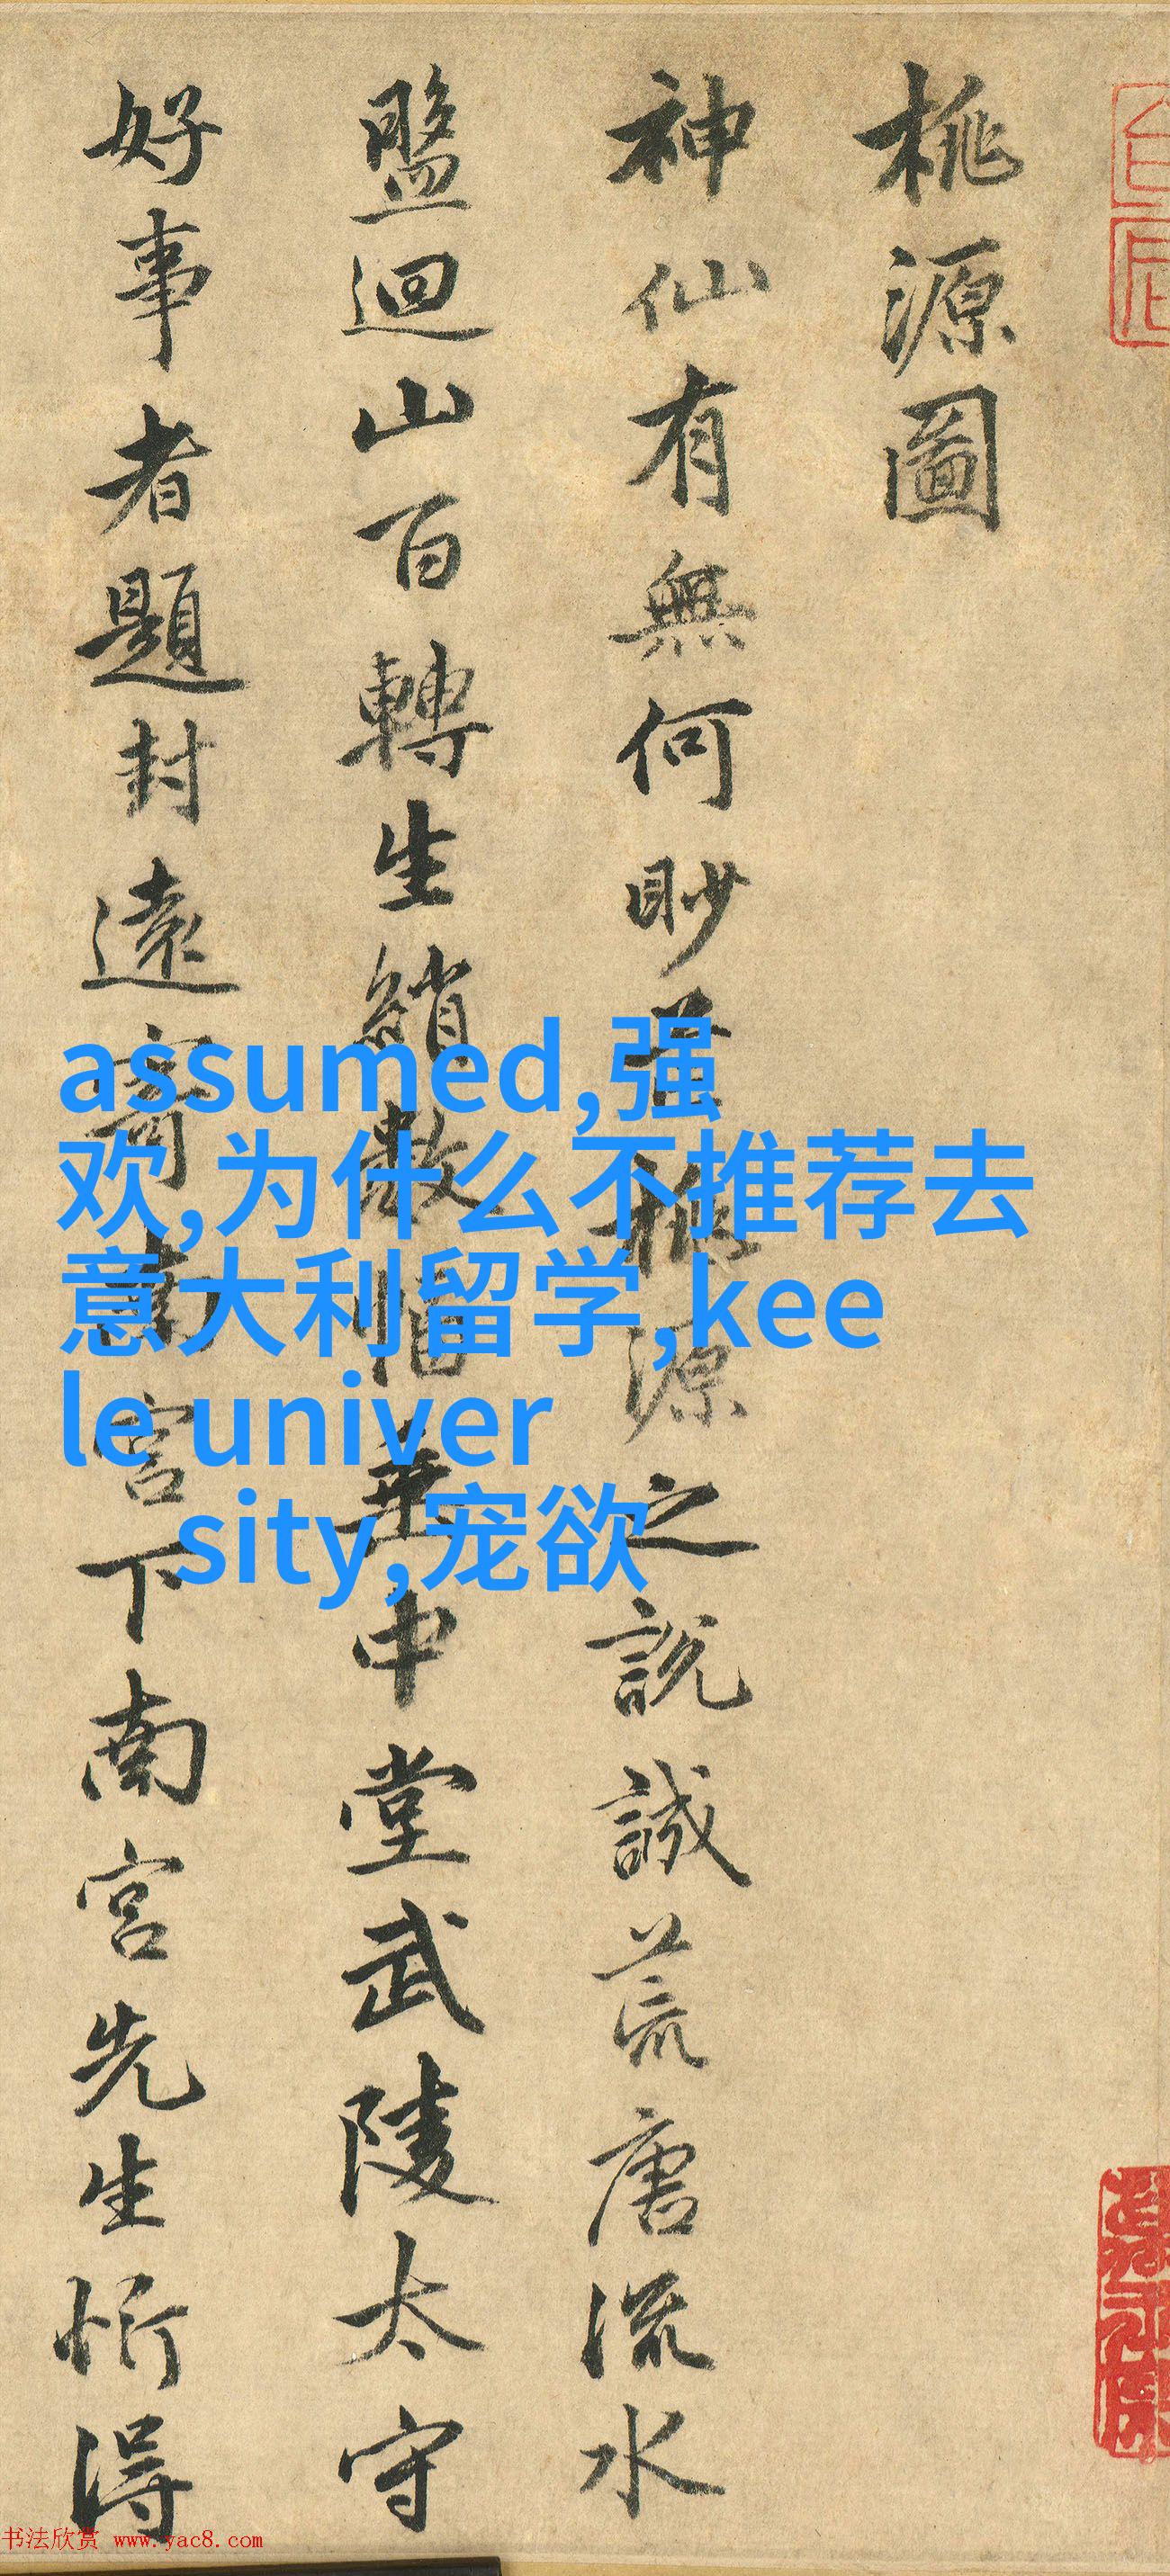 桃源圖
神仙有無何眇芒桃源之說誠荒唐流水
盤迴山百轉生綃數幅垂中堂武陵太守
好事者題封遠寄南宮下南宮先生忻得
assumed,强
欢,为什么不推荐去
意大利留学,kee
le univer
sity,宠欲
书法欣赏 www.yac8.com